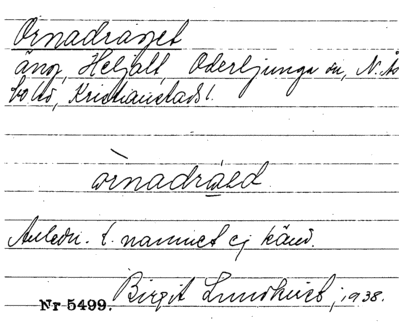 Örnadraget
äng, Heljalt Oderljunga sn, N. Ås
bo hd, Kristianstads l.
òrnadráed
Anledn. t. namnet ej känd.
Birgit Lundkvist, 1938.
Nr 5499.